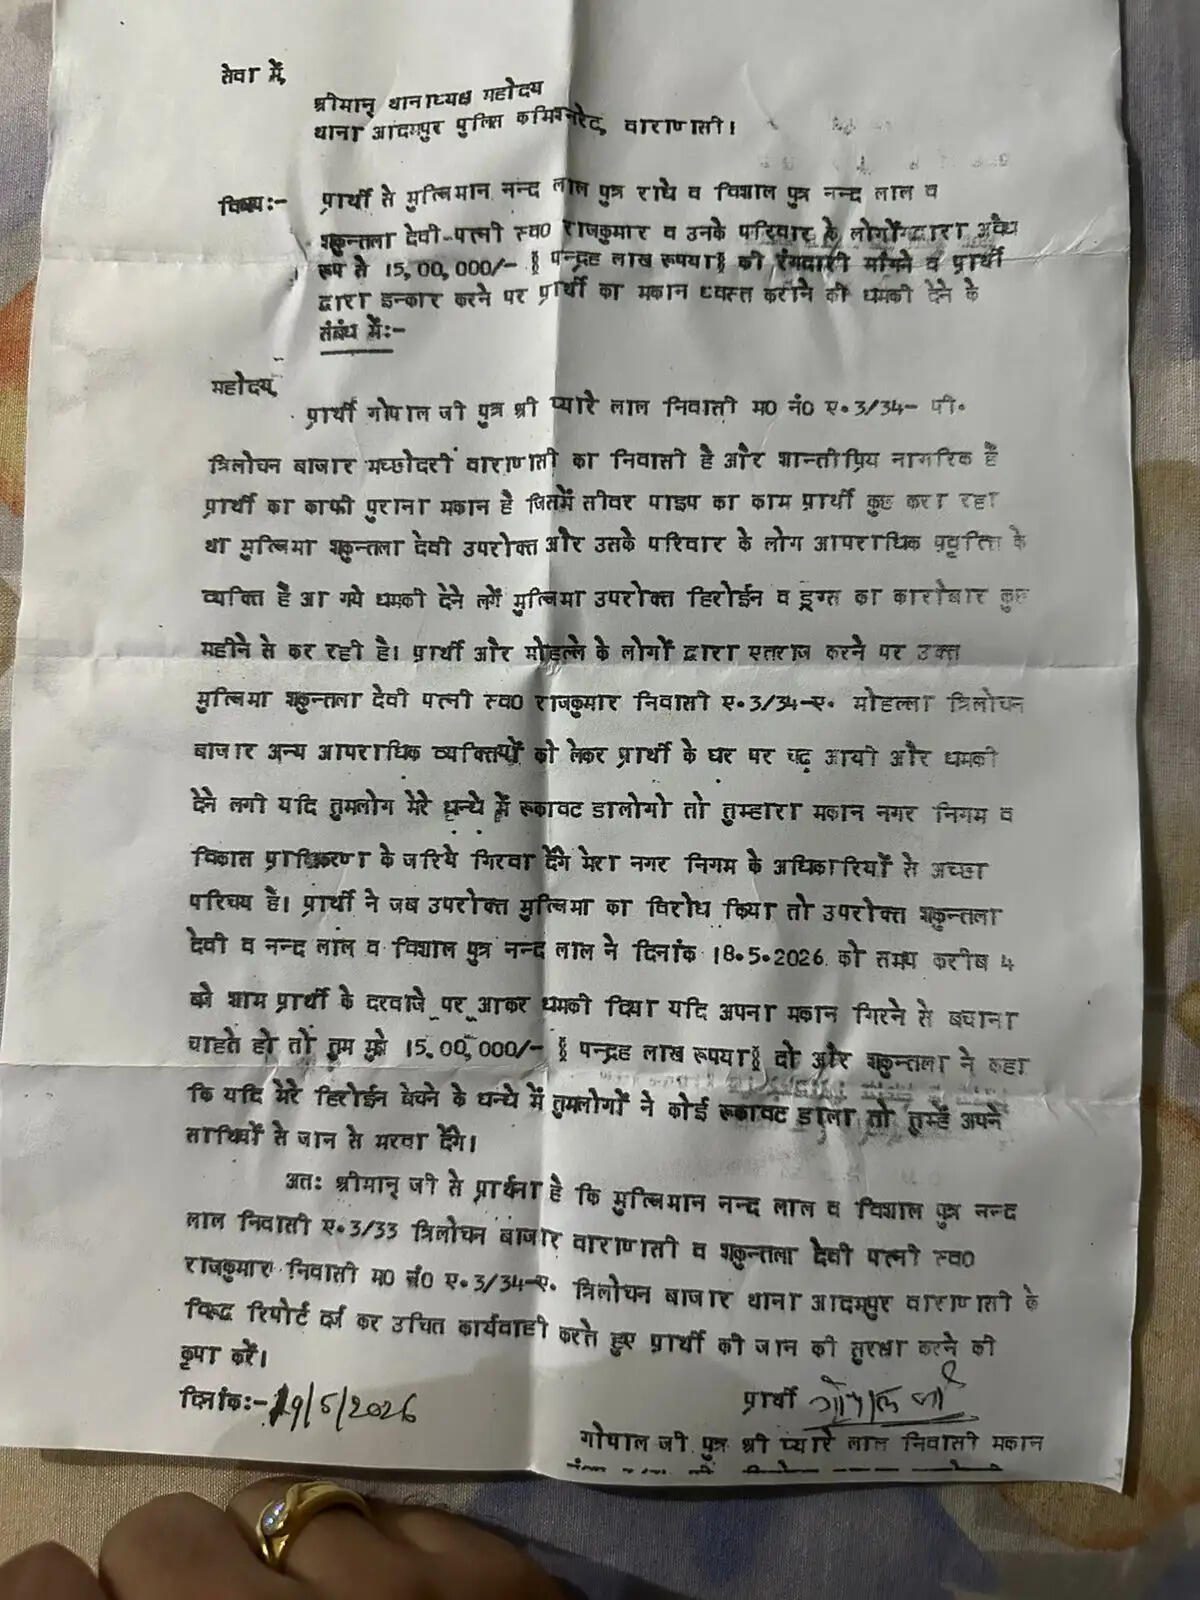 सेवा में,
श्रीमान् थानाध्यक्ष महोदय
थाना आदमपुर पुलिस कमिश्नरेट, वाराणसी।
विषय:- प्रार्थी से मुल्जिमान नन्द लाल पुत्र राधे व विशाल पुत्र नन्द लाल व
शकुन्तला देवी-पत्नी स्व0 राजकुमार व उनके परिवार के लोगों द्वारा अवैध
रूप से 15,00,000/- ( पन्द्रह लाख रूपया) की रंगदारी मांगने व प्रार्थी
द्वारा इन्कार करने पर प्रार्थी का मकान ध्वस्त कराने की धमकी देने के
संबंध में:-
महोदय,
प्रार्थी गोपाल जी पुत्र श्री प्यारे लाल निवासी म0 नं0 ए. 3/34- पी.
त्रिलोचन बाजार मच्छोदरी वाराणसी का निवासी है और शान्तीप्रिय नागरिक है
प्रार्थी का काफी पुराना मकान है जिसमें सीवर पाइप का काम प्रार्थी कुछ करा रहा
था मुल्जिमा शकुन्तला देवी उपरोक्त और उसके परिवार के लोग आपराधिक प्रवृत्ति के
व्यक्ति है आ गये धमकी देने लगें मुल्जिमा उपरोक्त हिरोईन व ड्रग्स का कारोबार कुछ
महीने से कर रही है। प्रार्थी और मोहल्ले के लोगों द्वारा एतराज करने पर उक्त
मुल्जिमा शकुन्तला देवी पत्नी स्व0 राजकुमार निवासी ए.3/34-ए. मोहल्ला त्रिलोचन
बाजार अन्य आपराधिक व्यक्तियों को लेकर प्रार्थी के घर पर चढ़ आयी और धमकी
देने लगी यदि तुमलोग मेरे धन्धे में रूकावट डालोगो तो तुम्हारा मकान नगर निगम व
विकास प्राधिकरण के जरिये गिरवा देंगे मेरा नगर निगम के अधिकारियों से अच्छा
परिचय है। प्रार्थी ने जब उपरोक्त मुल्जिमा का विरोध किया तो उपरोक्त शकुन्तला
देवी व नन्द लाल व विशाल पुत्र नन्द लाल ने दिनांक 18.5.2026 को समय करीब 4
बजे शाम प्रार्थी के दरवाजे पर आकर धमकी दिया यदि अपना मकान गिरने से बचाना
चाहते हो तो तुम मुझे 15,00,000/- ( पन्द्रह लाख रूपया) दो और शकुन्तला ने कहा
कि यदि मेरे हिरोईन बेचने के धन्धे में तुमलोगों ने कोई रूकावट डाला तो तुम्हें अपने
साथियों से जान से मरवा देंगे।
अत: श्रीमान् जी से प्रार्थना है कि मुल्जिमान नन्द लाल व विशाल पुत्र नन्द
लाल निवासी ए.3/33 त्रिलोचन बाजार वाराणसी व शकुन्तला देवी पत्नी स्व0
राजकुमार निवासी म0 नं0 ए.3/34-ए. त्रिलोचन बाजार थाना आदमपुर वाराणसी के
विरूद्ध रिपोर्ट दर्ज कर उचित कार्यवाही करते हुए प्रार्थी की जान की सुरक्षा करने की
कृपा करें।
दिनांक:- 19/5/2026
प्रार्थी गोपाल जी
गोपाल जी पुत्र श्री प्यारे लाल निवासी मकान